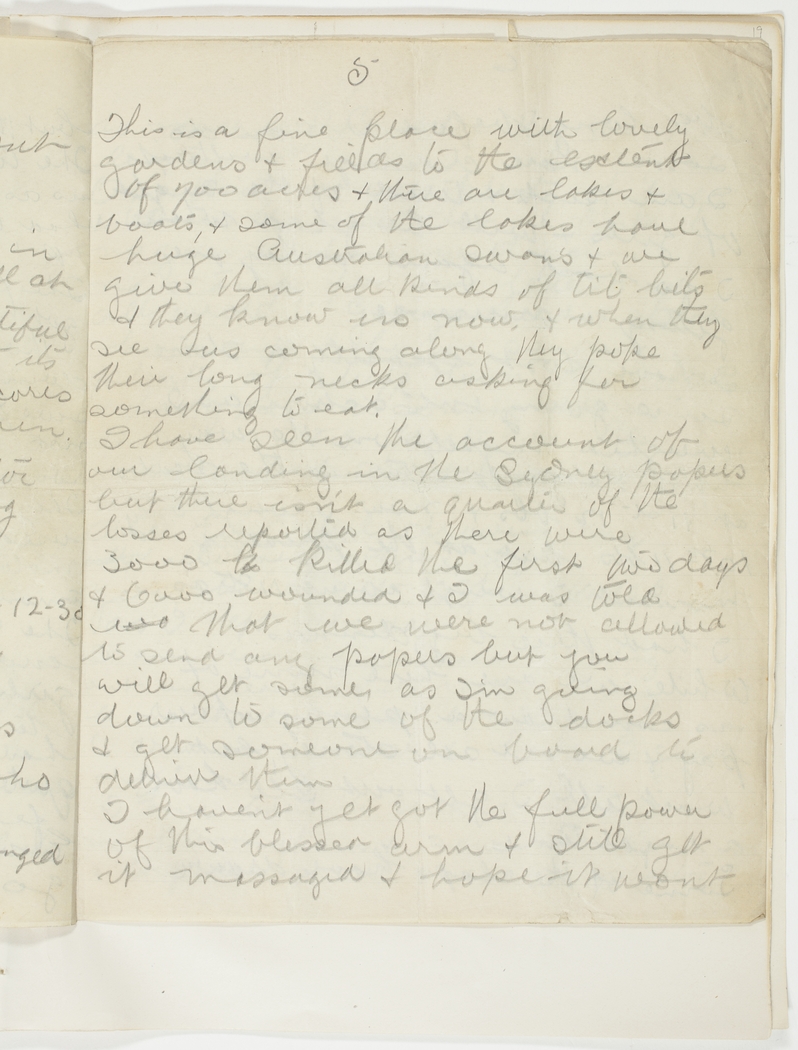 19
5
This is a fine place with lovely
gardens & fields to the extent
of 700 acres & there are lakes &
boats, & some of the lakes have
huge Australian swans & we
give them all kinds of tit bits
& they know us now, & when they
see us coming along they pope
their long necks asking for
something to eat.
I have seen the account of
our landing in the Sydney papers
but there isn't a quarter of the
losses reported as there were
3000 killed the first two days
& 6000 wounded & I was told
that we were not allowed
to send any papers but you
will get some, as I'm going
down to some of the docks
& get someone on board to
deliver them
I haven't yet got the full power
of this blessed arm & still get
it massaged & hope it wont
in
its
12-30